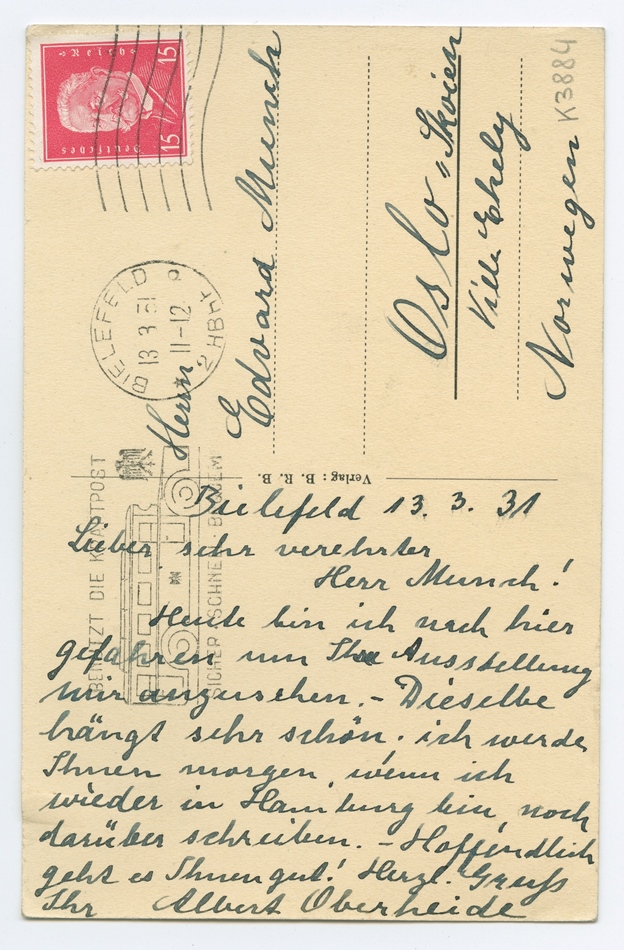 Deutsches
Reich
15
15
BIELEFELD 2
13 3 31
11-12
BENUTZT DIE KRAFTPOST
SICHER SCHNELL BEQUEM
Herrn
Edvard Munch
Oslo, Skøien
Villa Ekely
Norwegen
K3884
Verlag: B. R. B.
Bielefeld 13. 3. 31
Lieber sehr verehrter
Herr Munch!
Heute bin ich nach hier
gefahren um Ihre Ausstellung
mir anzusehen. - Dieselbe
hängt sehr schön. ich werde
Ihnen morgen, wenn ich
wieder in Hamburg bin, noch
darüber schreiben. - Hoffendlich
geht es Ihnen gut! Herzl. Gruß
Ihr Albert Oberheide